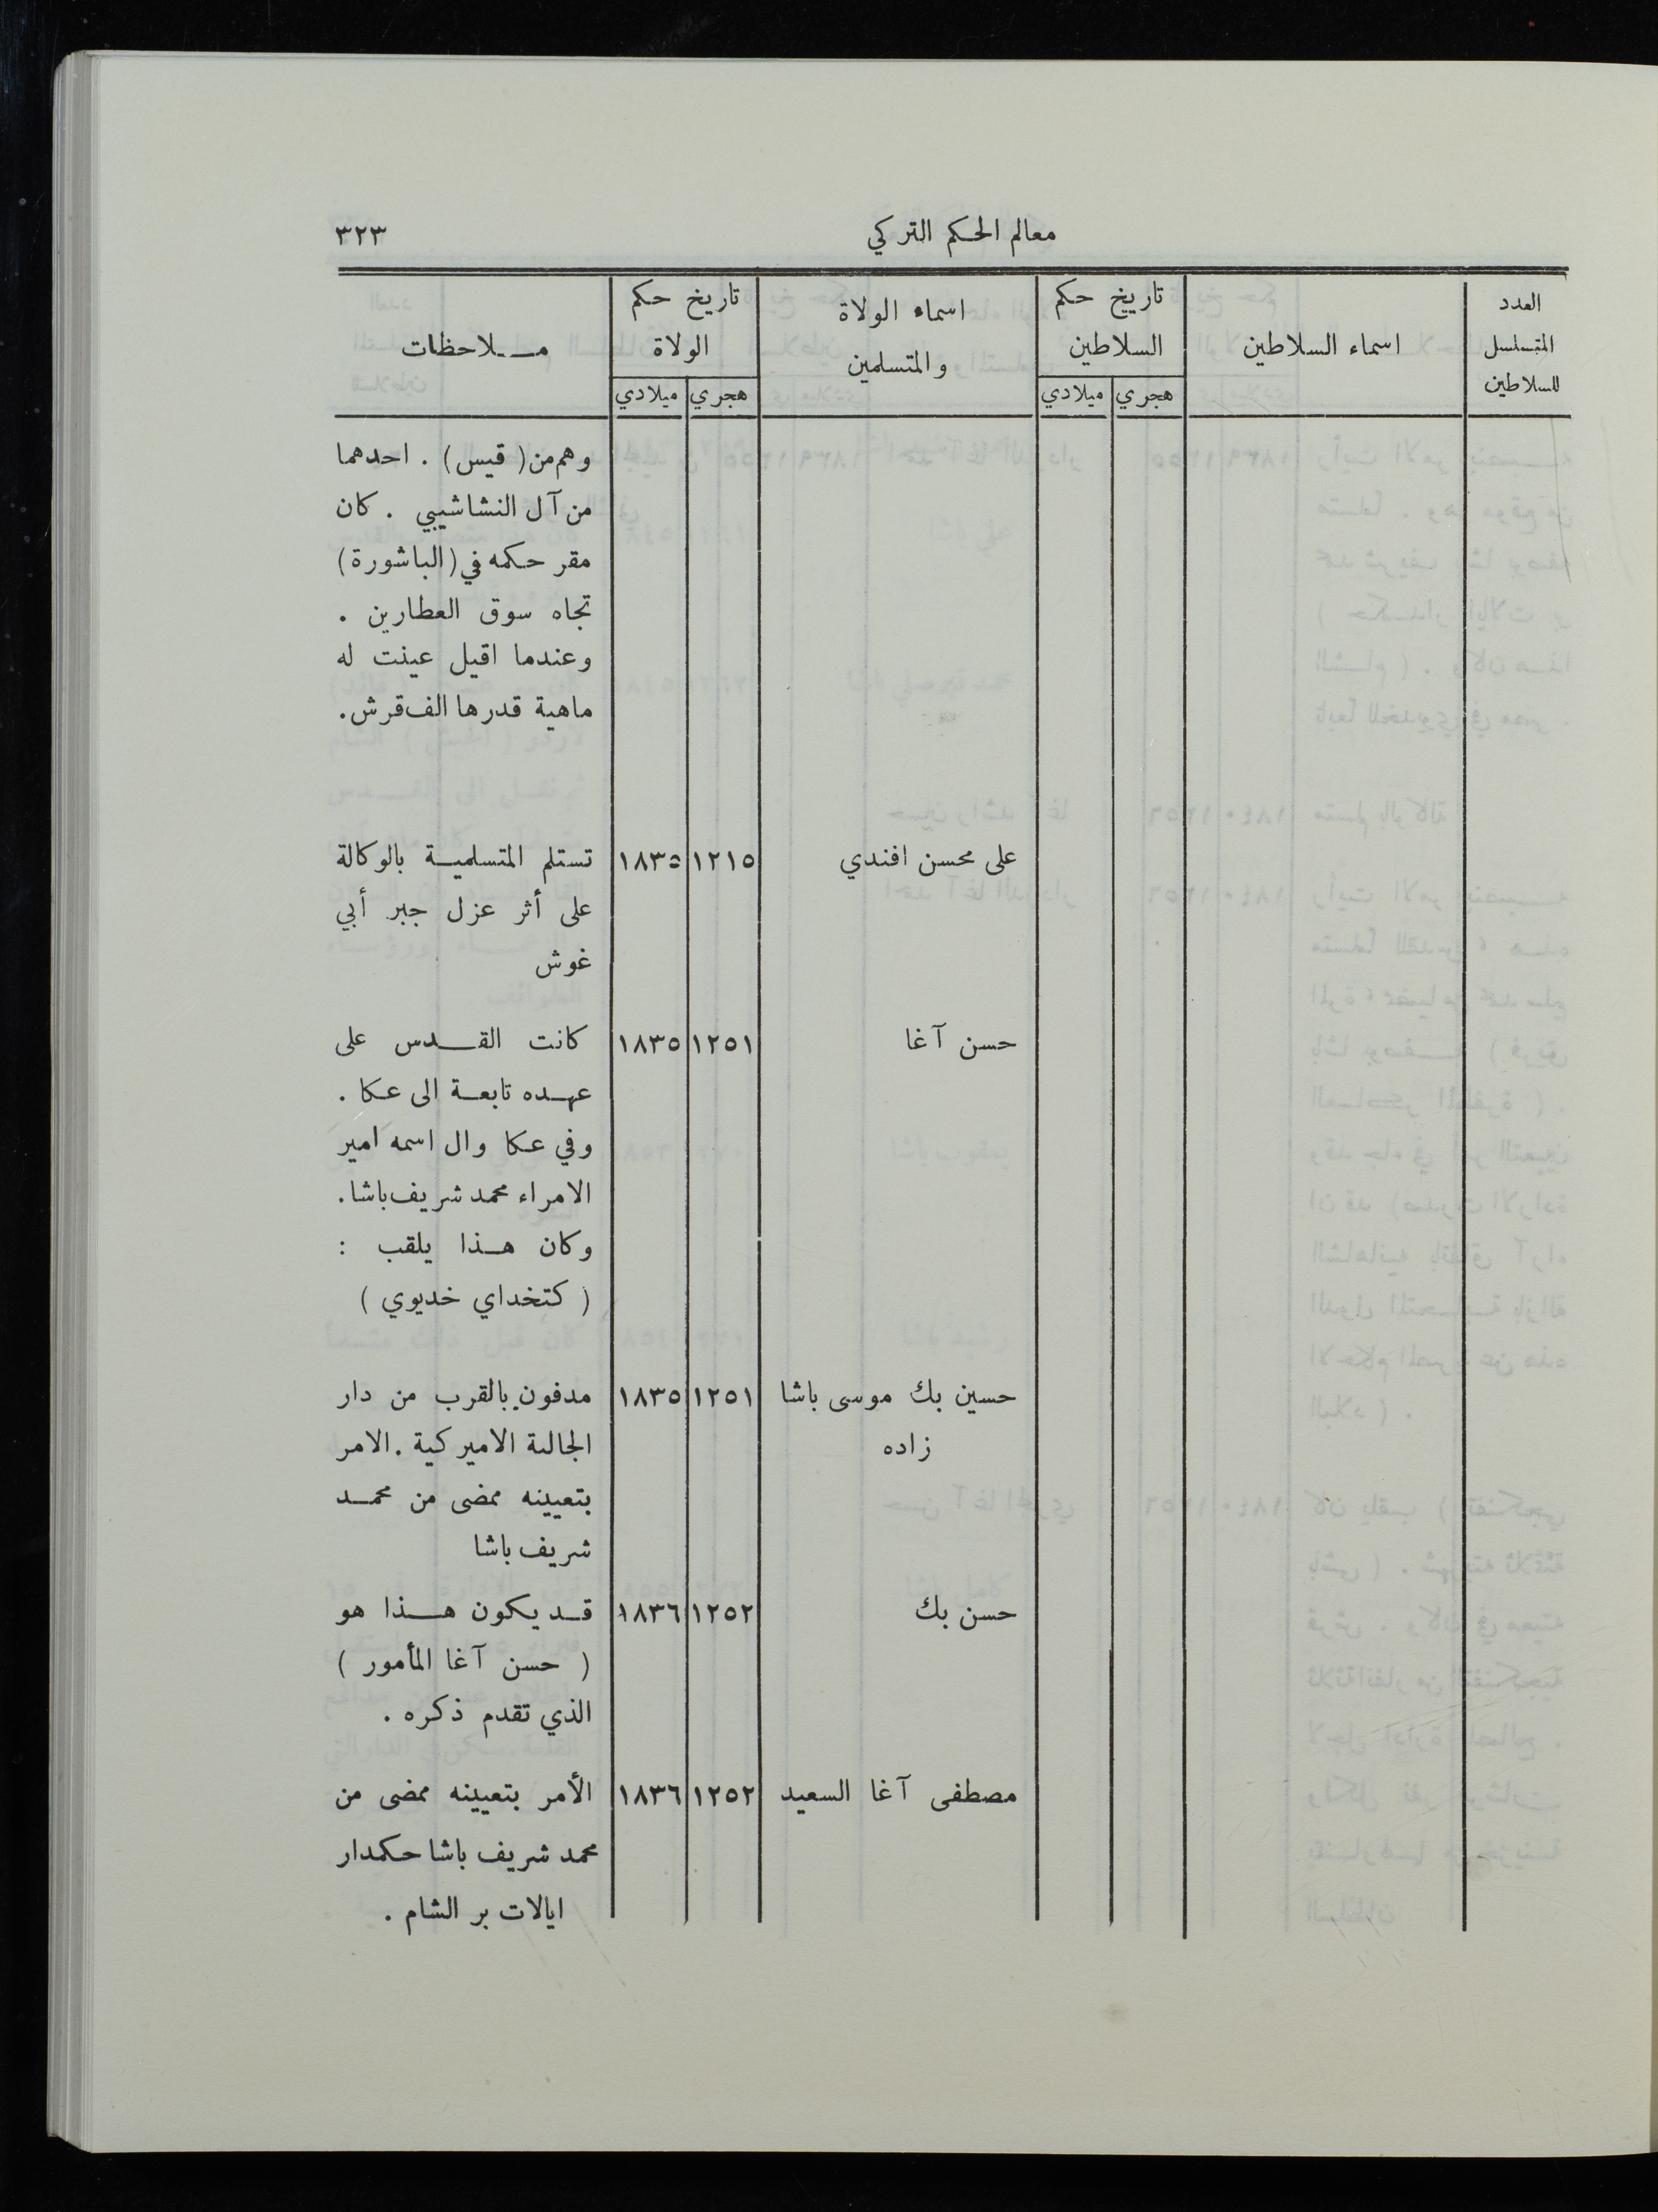 معالم الحكم التركي
٣٢٣
العدد المتسلسل للسلاطين
اسماء السلاطين
تاريخ حكم السلاطين
هجري ميلادي
اسماء الولاة والمتسلمين
تاريخ حكم الولاة
هجري ميلادي
ملاحظات
وهم من (قيس) . احدهما
من آل النشاشيبي . كان
مقر حكمه في (الباشورة)
تجاه سوق العطارين .
وعندما اقيل عينت له
ماهية قدرها الف قرش .
على محسن افندي ١٢١٥ ١٨٣٥ تستلم المتسلمية بالوكالة
على أثر عزل جبر أبي
غوش
حسن آغا ١٢٥١ ١٨٣٥ كانت القدس على
عهده تابعة الى عكا .
وفي عكا وال اسمه امير
الامراء محمد شريف باشا .
وكان هذا يلقب :
( كتخداي خديوي )
حسين بك موسى باشا ١٢٥١ ١٨٣٥ مدفون بالقرب من دار
زاده الجالية الاميركية . الامر
بتعيينه ممضى من محمد
شريف باشا
حسن بك ١٢٥٢ ١٨٣٦ قد يكون هذا هو
( حسن آغا المأمور )
الذي تقدم ذكره .
مصطفى آغا السعيد ١٢٥٢ ١٨٣٦ الأمر بتعيينه ممضى من
محمد شريف باشا حكمدار
ايالات بر الشام .